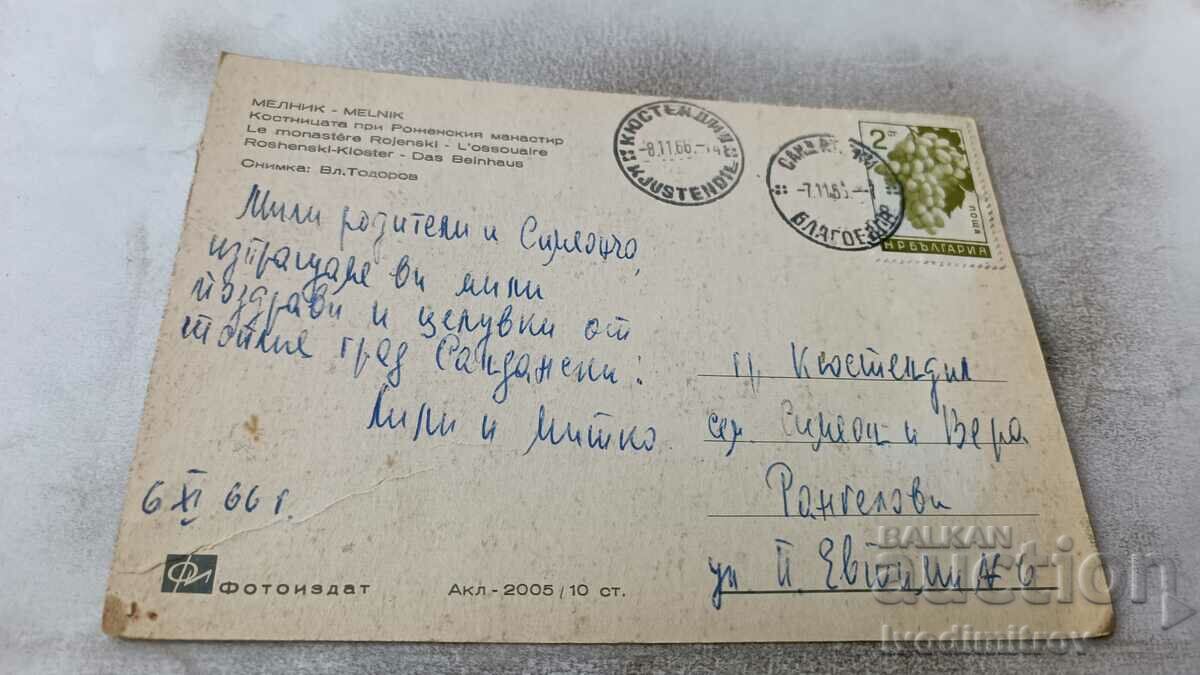 МЕЛНИК - MELNIK
Костницата при Роженския манастир
Le monastére Rojenski - L'ossouaire
Roshenski-Kloster - Das Beinhaus
Снимка: Вл. Тодоров
КЮСТЕНДИЛ
-8.11.66.-
KJUSTENDIL
-7.11.66.-
БЛАГОЕВГР
2 ст
поща
НР БЪЛГАРИЯ
Мили родители и Симеончо,
изпращаме ви мили
поздрави и целувки от
топлия град Сандански!
Лили и Митко
6 XI 66 г.
гр Кюстендил
сем. Симеон и Вера
Рангелови
ул П. Евтимий 6
ФИ
Фотоиздат
Акл - 2005 / 10 ст.
BALKAN
auction
ivodimitrov